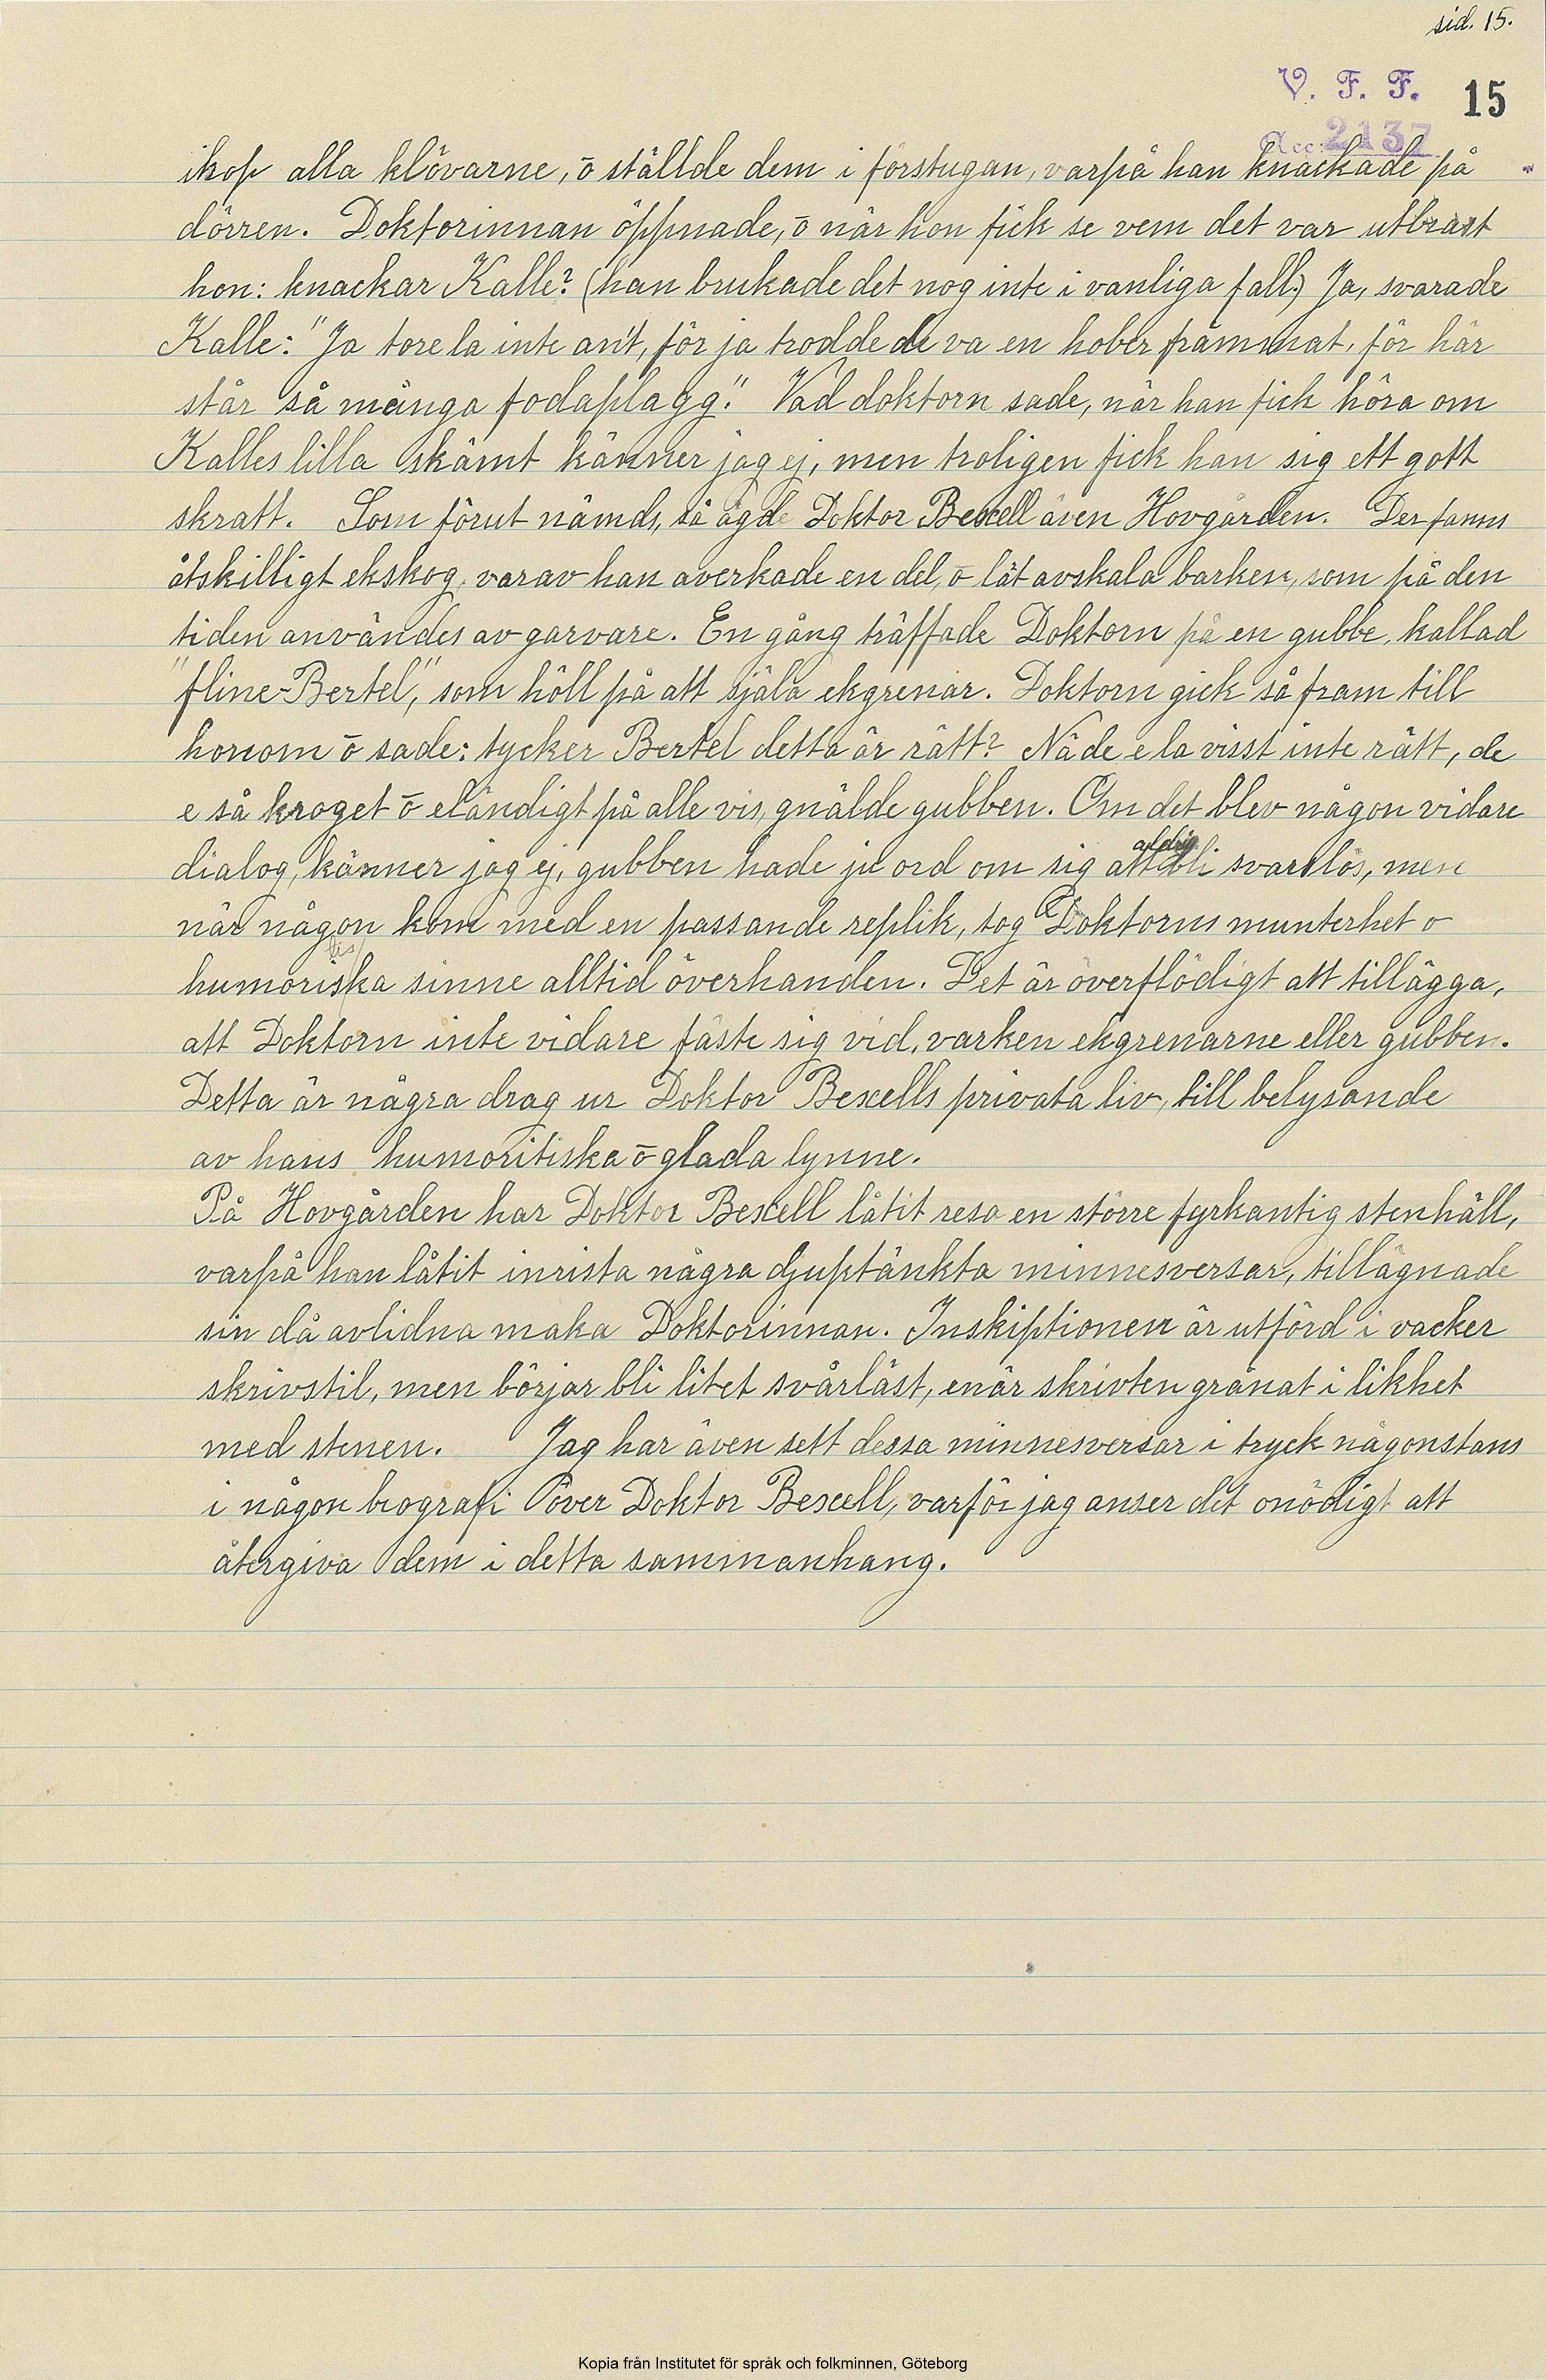 sid. 15.
V. F. F. 15
Acc: 2137
ihop alla klövarne, ō ställde dem i förstugan, varpå han knackade på
dörren. Doktorinnan öppnade, ō när hon fick se vem det var utbrast
hon: knackar Kalle? (han brukade det nog inte i vanliga fall.) Ja, svarade
Kalle: "Ja tore la inte an't, för ja trodde de va en hober främmat, för här
står så många fodaplagg." Vad doktorn sade, när han fick höra om
Kalles lilla skämt känner jag ej, men troligen fick han sig ett gott
skratt. Som förut nämds, så ägde Doktor Bexell även Hovgården. Der fanns
åtskilligt ekskog, varav han averkade en del, ō lät avskala barken, som på den
tiden användes av garvare. En gång träffade Doktorn på en gubbe, kallad
"fline-Bertel", som höll på att själa ekgrenar. Doktorn gick så fram till
honom ō sade: tycker Bertel detta är rätt? Nä de e la visst inte rätt, de
e så kroget ō eländigt på alle vis, gnälde gubben. Om det blev någon vidare
dialog, känner jag ej, gubben hade ju ord om sig att aldrig bli svarslös, men
när någon kom med en passande replik, tog Doktorns munterhet o
humoristiska sinne alltid överhanden. Det är överflödigt att tillägga,
att Doktorn inte vidare fäste sig vid, varken ekgrenarne eller gubben.
Detta är några drag ur Doktor Bexells privata liv, till belysande
av hans humoritiska ō glada lynne.
På Hovgården har Doktor Bexell låtit resa en större fyrkantig stenhäll,
varpå han låtit inrista några djuptänkta minnesversar, tillägnade
sin då avlidna maka Doktorinnan. Inskiptionen är utförd i vacker
skrivstil, men börjar bli litet svårläst, enär skrivten grånat i likhet
med stenen. Jag har även sett dessa minnesversar i tryck någonstans
i någon biografi över Doktor Bexell, varför jag anser det onödigt att
återgiva dem i detta sammanhang.
Kopia från Institutet för språk och folkminnen, Göteborg